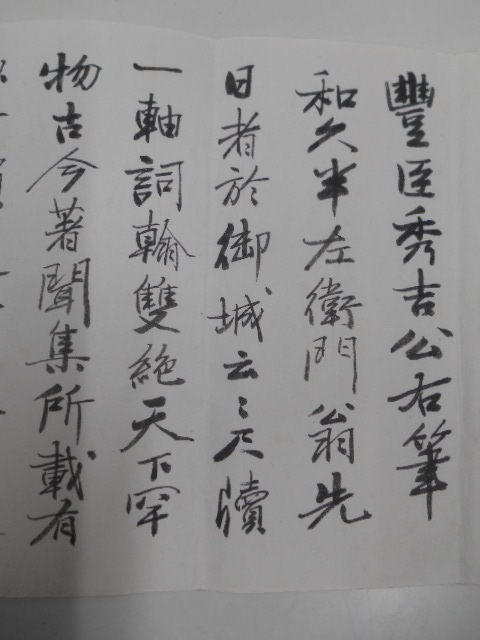 豐臣秀吉公右筆
和久半左衛門翁先
日者於御城云〻尺牘
一軸詞翰雙絶天下罕
物古今著聞集所載有